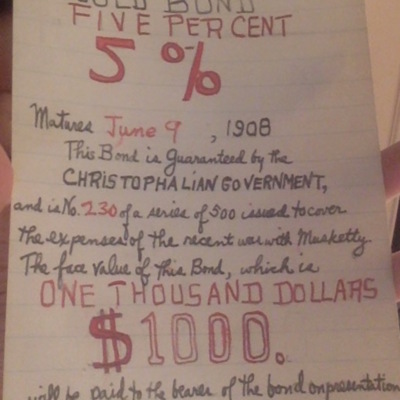 GOLD BOND
FIVE PER CENT
5%
Matures June 9, 1908
This Bond is Guaranteed by the
CHRISTOPHALIAN GOVERNMENT,
and is No. 230 of a series of 500 issued to cover
the expenses of the recent war with Musketty.
The face value of this Bond, which is
ONE THOUSAND DOLLARS
$1000.
will be paid to the bearer of the bond on presentation